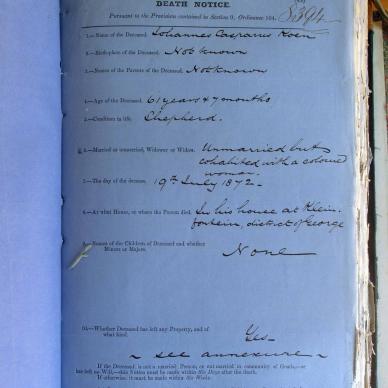 DEATH NOTICE.
Pursuant to the Provisions contained in Section 9, Ordinance 104.
8394
1.—Name of the Deceased. Johannes Casparus Koen
2.—Birthplace of the Deceased. Not known
3.—Names of the Parents of the Deceased. Not Known
4.—Age of the Deceased. 61 years & 7 months
5.—Condition in life. Shepherd.
6.—Married or unmarried, Widower or Widow. Unmarried but
cohabited with a coloured
woman.
7.—The day of the decease. 19th July 1872-
8.—At what House, or where the Person died. In his house at Klein
fontein, district of George
9.—Names of the Children of Deceased and whether
Minors or Majors. None
10.—Whether Deceased has left any Property, and of
what kind. Yes-
~ see annexure ~
If the Deceased is not a married Person, or not married in community of Goods,—or
has left no Will,—this Notice must be made within Six Days after the death.
If otherwise, it must be made within Six Weeks.